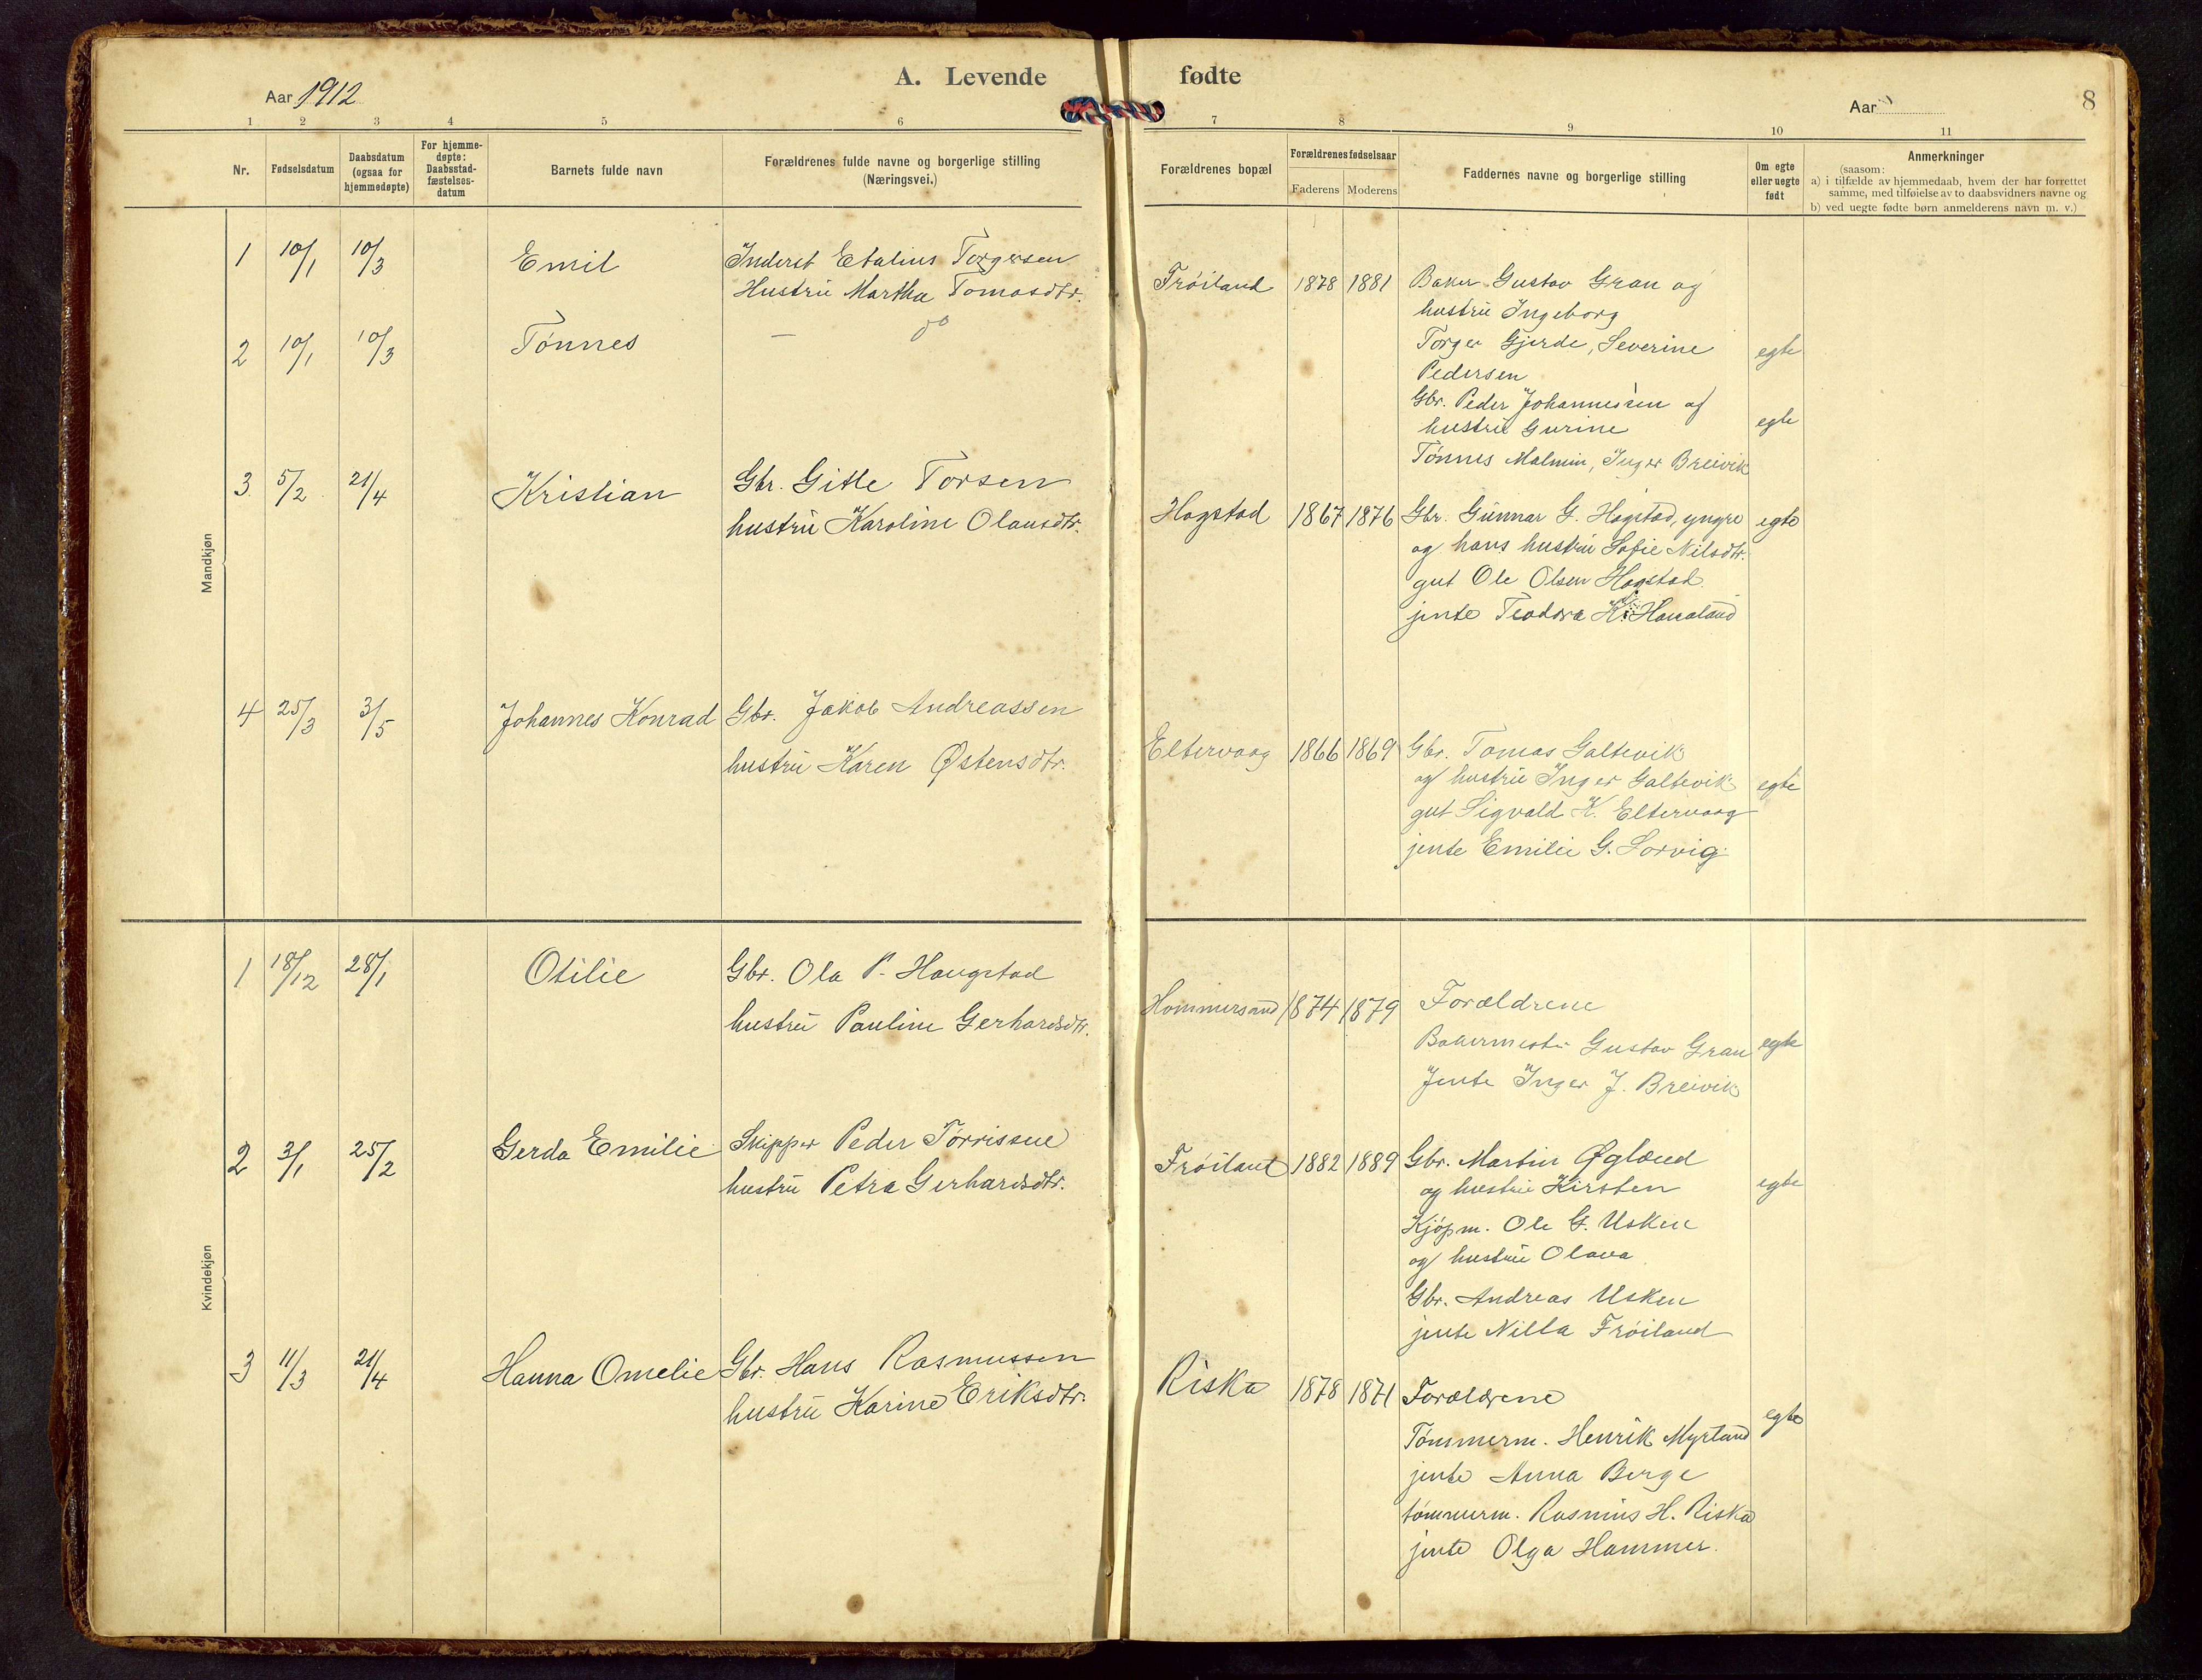 A. Levende fødte
Aar 1912
Aar
8
1 2 3 4 5 6 7 8 9 10 11
Nr.
Fødselsdatum
Daabsdatum
(ogsaa for
hjemmedøpte)
For hjemme-
døpte:
Daabsstad-
fæstelses-
datum
Barnets fulde navn
Forældrenes fulde navne og borgerlige stilling
(Næringsvei.)
Forældrenes bopæl
Forældrenes fødselsaar
Faderens Moderens
Faddernes navne og borgerlige stilling
Om egte
eller uegte
født
Anmerkninger
(saasom:
a) i tilfælde av hjemmedaab, hvem der har forrettet
samme, med tilføielse av to daabsvidners navne og
b) ved uegte fødte børn anmelderens navn m. v.)
Mandkjøn
1 10/1 10/3 Emil
Inderst Etalius Torgersen
Hustru Martha Tomasdtr.
Frøiland 1878 1881
Baker Gustav Gran og
hustru Ingeborg
Torger Gjerde, Severine
Pedersen
egte
2 10/1 10/3 Tønnes — do
Gbr. Peder Johannessen og
hustru Gurine
Tønnes Malmin, Inger Breivik
egte
3 5/2 21/4 Kristian
Gbr. Gitle Torsen
hustru Karoline Olausdtr.
Hogstad 1867 1876
Gbr. Gunnar G. Hogstad, yngre
og hans hustru Sofie Nilsdtr.
gut Ole Olsen Hogstad
jente Teodora K. Hanaland
egte
4 25/3 3/5 Johannes Konrad
Gbr. Jakob Andreassen
hustru Karen Østensdtr.
Eltervaag 1866 1869
Gbr. Tomas Galtevik
og hustru Inger Galtevik
gut Sigvald K. Eltervaag
jente Emilie G. Sorvig
egte
Kvindekjøn
1 18/12 28/1 Otilie
Gbr. Ola P. Haugstad
hustru Pauline Gerhardsdtr.
Hommersand 1874 1879
Forældrene
Bakermester Gustav Gran
Jente Inger J. Breivik
egte
2 3/1 25/2 Gerda Emilie
Skipper Peder Tørrissen
hustru Petra Gerhardsdtr.
Frøiland 1882 1889
Gbr. Martin Øglænd
og hustru Kirsten
Kjøpm. Ole G. Usken
og hustru Olava
Gbr. Andreas Usken
jente Nilla Frøiland
egte
3 11/3 21/4 Hanna Omelie
Gbr. Hans Rasmussen
hustru Karine Eriksdtr.
Riska 1878 1871
Forældrene
Tømmerm. Henrik Myrland
jente Anna Berge
tømmerm. Rasmus H. Riska
jente Olga Hammer.
egte